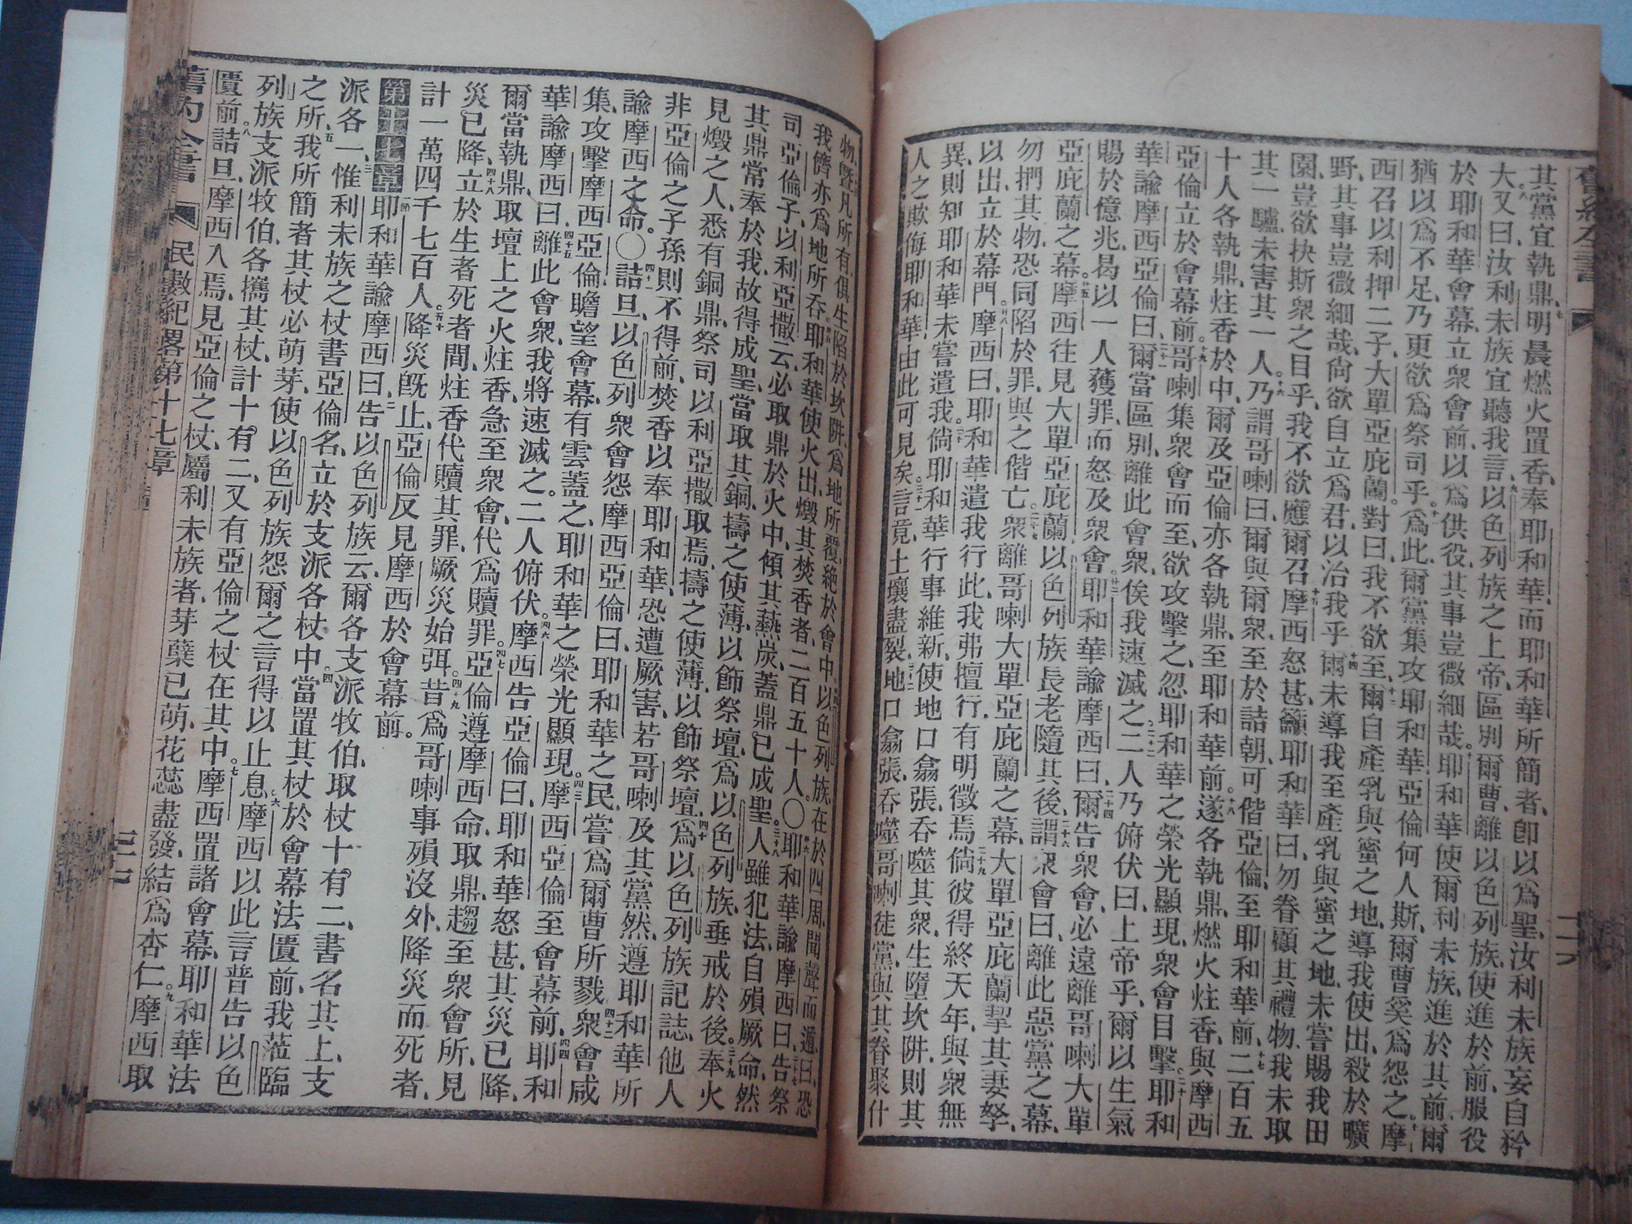 其黨宜執鼎明晨燃火置香奉耶和華而耶和華所簡者卽以爲聖汝利未族妄自矜
大又曰汝利未族宜聽我言以色列族之上帝區別爾曹離以色列族使進於前服役
於耶和華會幕立衆會前以爲供役其事豈微細哉耶和華使爾利未族進於其前爾
猶以爲不足乃更欲爲祭司乎爲此爾黨集攻耶和華亞倫何人斯爾曹奚爲怨之摩
西召以利押二子大單亞庇蘭對曰我不欲至爾自產乳與蜜之地導我使出殺於曠
野其事豈微細哉尙欲自立爲君以治我乎爾未導我至產乳與蜜之地未嘗賜我田
園豈欲抉斯衆之目乎我不欲應爾召摩西怒甚籲耶和華曰勿眷顧其禮物我未取
其一驢未害其一人乃謂哥喇曰爾與爾衆至於詰朝可偕亞倫至耶和華前二百五
十人各執鼎炷香於中爾及亞倫亦各執鼎至耶和華前遂各執鼎燃火炷香與摩西
亞倫立於會幕前哥喇集衆會而至欲攻擊之忽耶和華之榮光顯現衆會目擊耶和
華諭摩西亞倫曰爾當區別離此會衆俟我速滅之二人乃俯伏曰上帝乎爾以生氣
賜於億兆曷以一人獲罪而怒及衆會耶和華諭摩西曰爾告衆會必遠離哥喇大單
亞庇蘭之幕摩西往見大單亞庇蘭以色列族長老隨其後謂衆會曰離此惡黨之幕
勿捫其物恐同陷於罪與之偕亡衆離哥喇大單亞庇蘭之幕大單亞庇蘭挈其妻孥
以出立於幕門摩西曰耶和華遣我行此我弗擅行有明徵焉倘彼得終天年與衆無
異則知耶和華未嘗遣我倘耶和華行事維新使地口翕張吞噬其衆生墮坎阱則其
人之欺侮耶和華由此可見矣言竟土壤盡裂地口翕張吞噬哥喇徒黨與其眷聚什
物曁凡所有俱生陷於坎阱爲地所覆絶於會中以色列族在於四周聞聲而遁曰恐
我儕亦爲地所吞耶和華使火出燬其焚香者二百五十人〇耶和華諭摩西曰告祭
司亞倫子以利亞撒云必取鼎於火中傾其熱炭蓋鼎已成聖人雖犯法自殞厥命然
其鼎常奉於我故得成聖當取其銅擣之使薄以飾祭壇爲以色列族垂戒於後奉火
見燬之人悉有銅鼎祭司以利亞撒取焉擣之使薄以飾祭壇爲以色列族記誌他人
非亞倫之子孫則不得前焚香以奉耶和華恐遭厥害若哥喇及其黨然遵耶和華所
諭摩西之命〇詰旦以色列衆會怨摩西亞倫曰耶和華之民嘗爲爾曹所戮衆會咸
集攻擊摩西亞倫瞻望會幕有雲蓋之耶和華之榮光顯現摩西亞倫至會幕前耶和
華諭摩西曰離此會衆我將速滅之二人俯伏摩西告亞倫曰耶和華怒甚其災已降
爾當執鼎取壇上之火炷香急至衆會代爲贖罪亞倫遵摩西命取鼎趨至衆會所見
災已降立於生者死者間炷香代贖其罪厥災始弭昔爲哥喇事殞沒外降災而死者
計一萬四千七百人降災旣止亞倫反見摩西於會幕前
第十七章耶和華諭摩西曰告以色列族云爾各支派牧伯取杖十有二書名其上支
派各一惟利未族之杖書亞倫名立於支派各杖中當置其杖於會幕法匱前我蒞臨
之所我所簡者其杖必萌芽使以色列族怨爾之言得以止息摩西以此言普告以色
列族支派牧伯各攜其杖計十有二又有亞倫之杖在其中摩西置諸會幕耶和華法
匱前詰旦摩西入焉見亞倫之杖屬利未族者芽孽已萌花蕊盡發結爲杏仁摩西取
舊約全書 民數紀畧第十七章